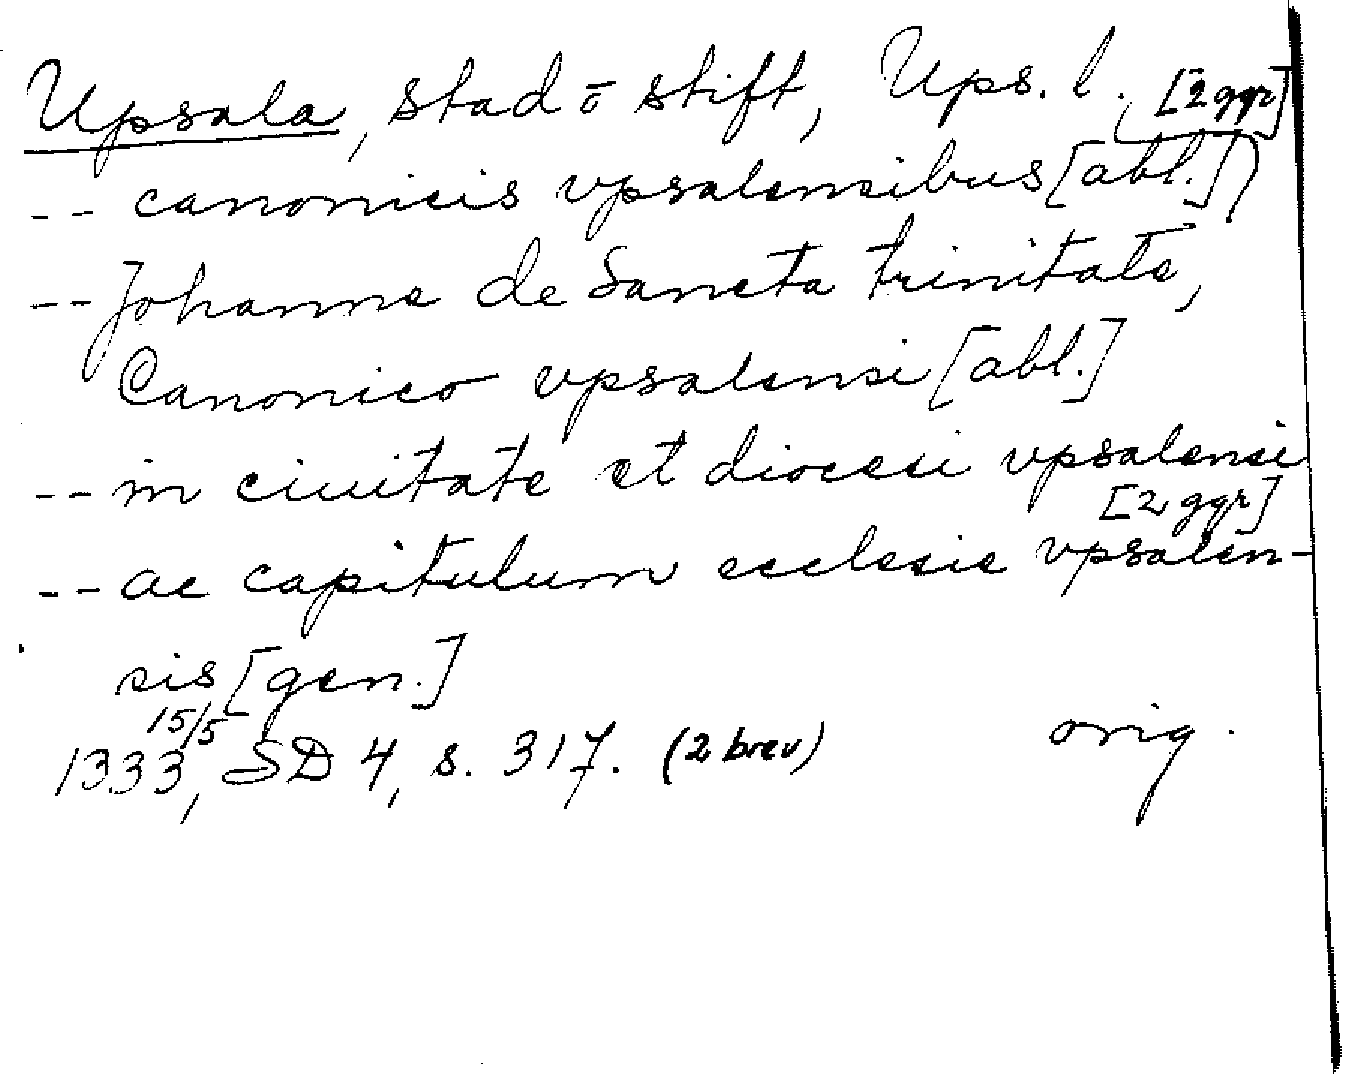 Upsala, stad ō stift, Ups. l. [2 ggr]
-- canonicis vpsalensibus [abl.]
-- Johanne de Sancta trinitate,
Canonico vpsalensi [abl.]
-- in ciuitate et diocesi vpsalensi
[2 ggr]
-- ac capitulum ecclesie vpsalen-
sis [gen.]
15/5
1333, SD 4, s. 317. (2 brev) orig.